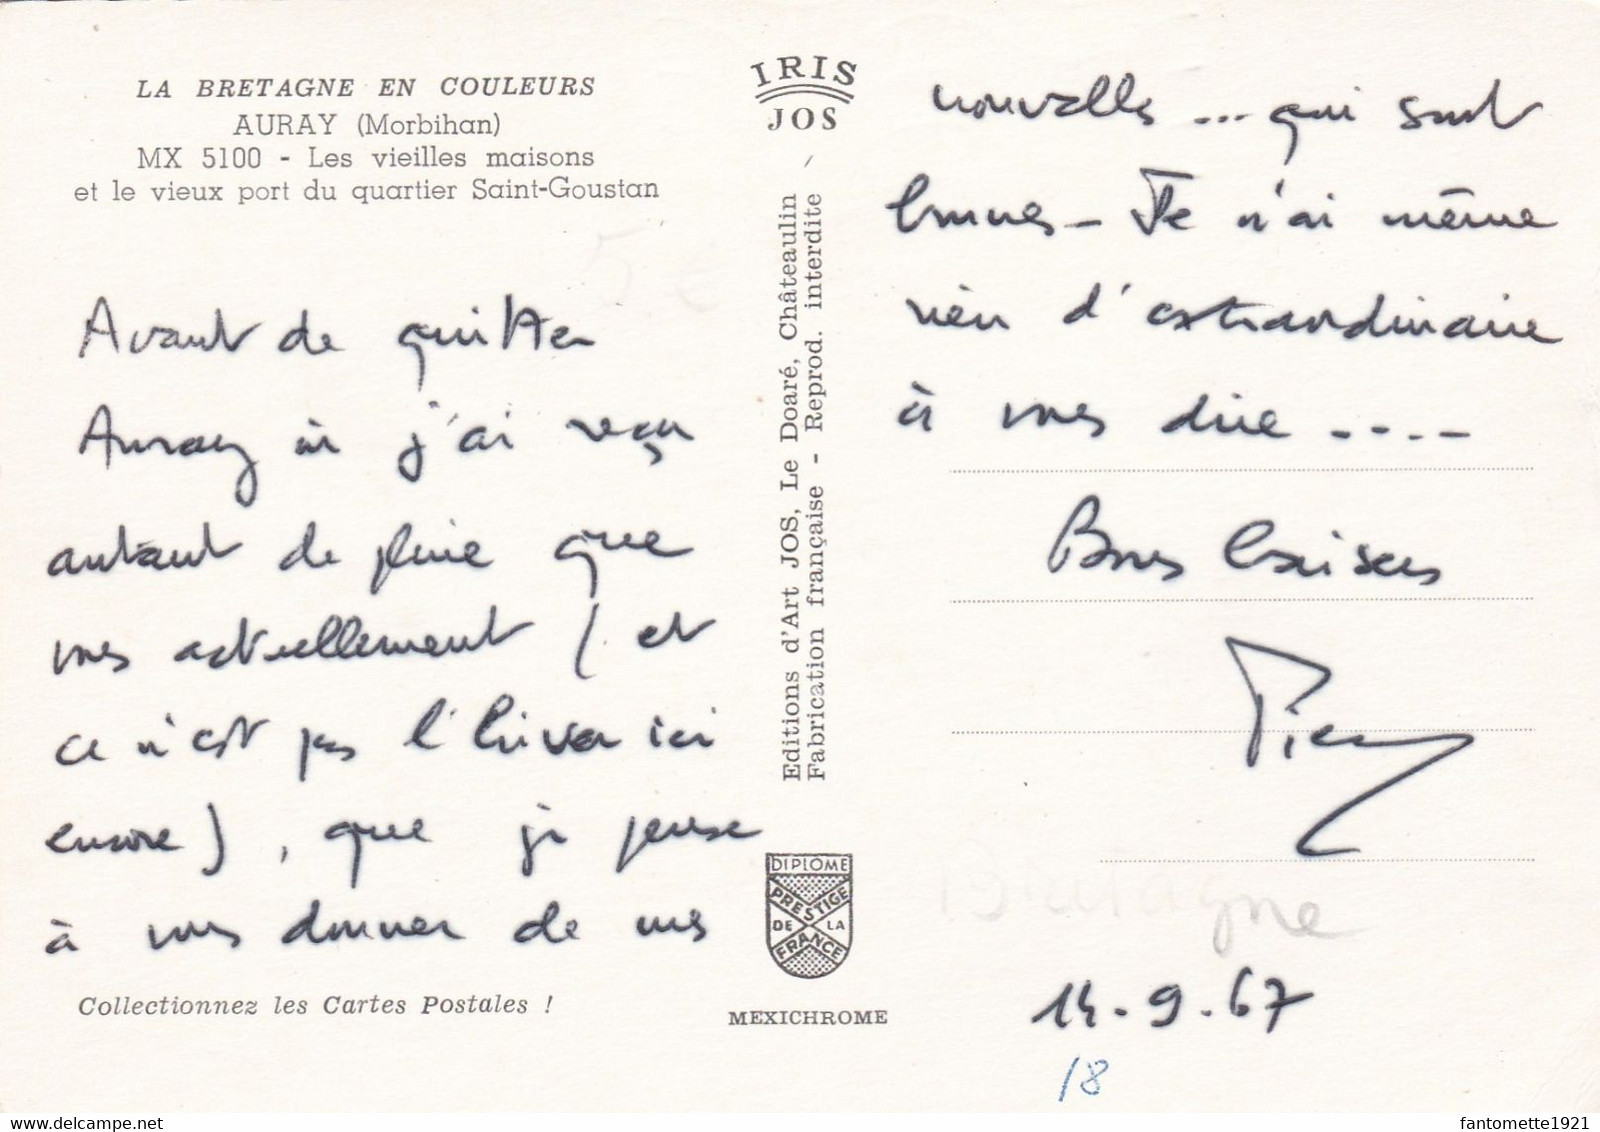 LA BRETAGNE EN COULEURS
AURAY (Morbihan)
MX 5100 - Les vieilles maisons
et le vieux port du quartier Saint-Goustan
5 €
Avant de quitter
Auray où j'ai reçu
autant de pluie que
vous actuellement (et
ce n'est pas l'hiver ici
encore), que je pense
à vous donner de mes
Collectionnez les Cartes Postales !
IRIS
JOS
Editions d'Art JOS, Le Doaré, Châteaulin
Fabrication française - Reprod. interdite
DIPLOME
PRESTIGE
DE LA
FRANCE
MEXICHROME
nouvelles ... qui sont
bonnes - Je n'ai même
rien d'extraordinaire
à vous dire ....
Bons baisers
Bretagne
14-9-67
18
fantomette1921